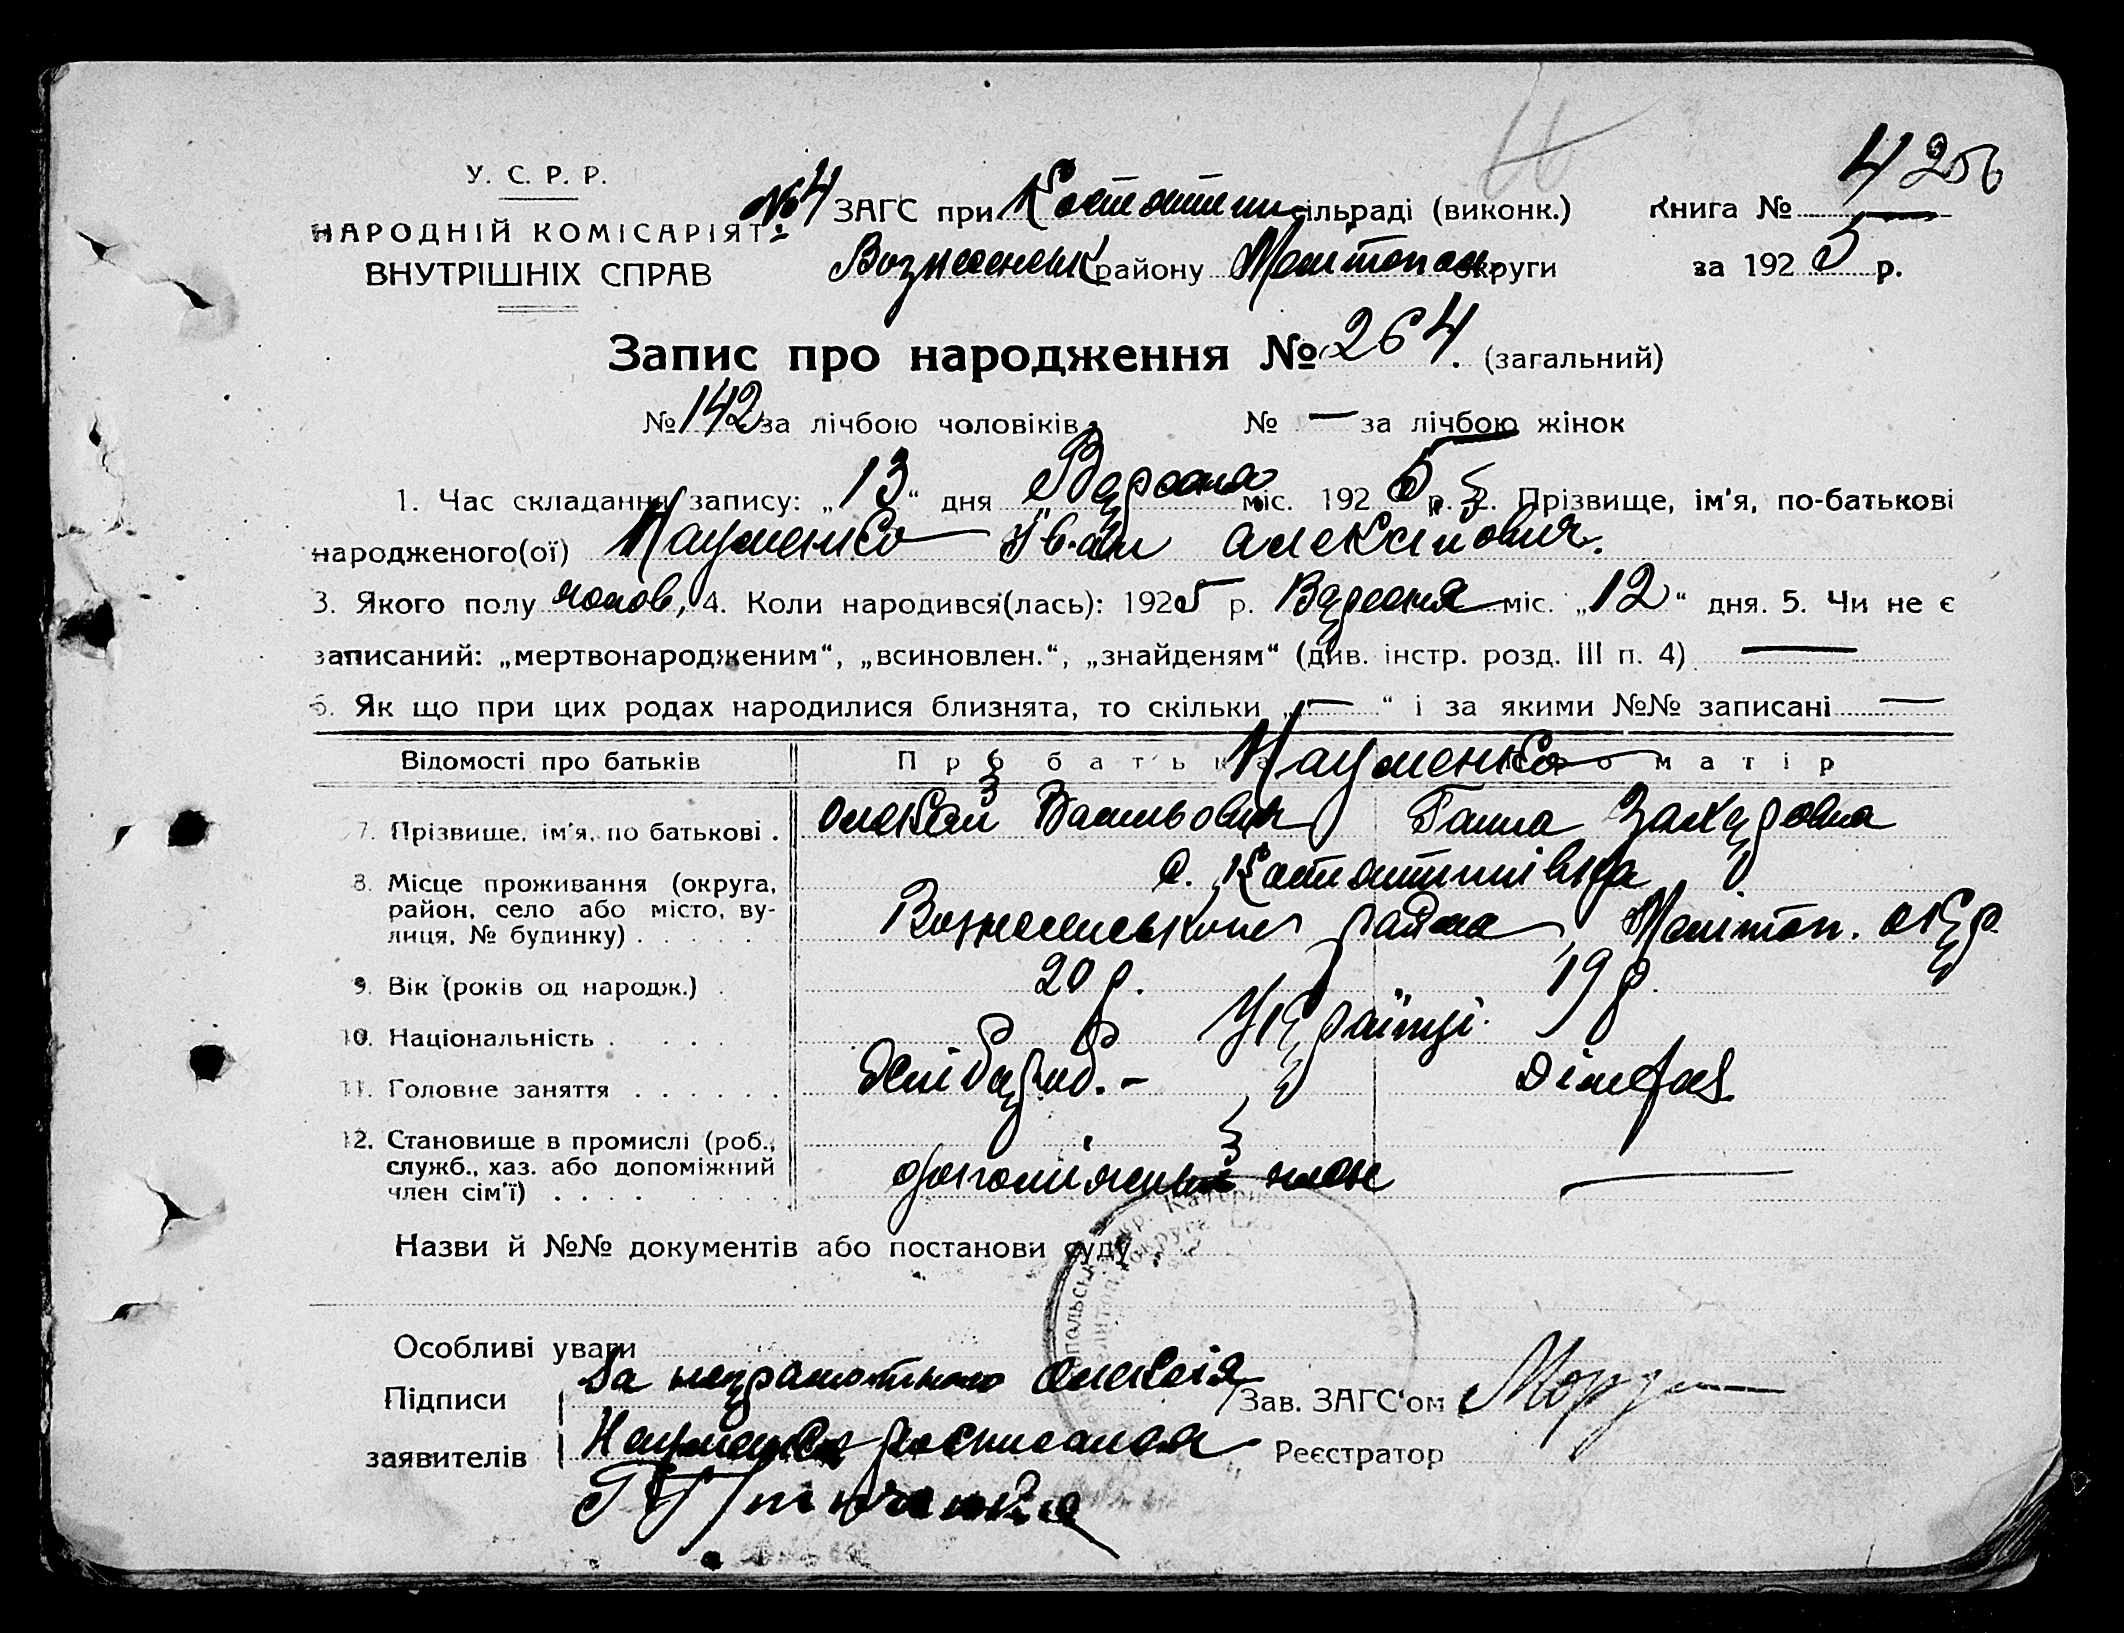 4 256
У. С. Р. Р.
НАРОДНІЙ КОМІСАРІЯТ
ВНУТРІШНІХ СПРАВ
№ 4 ЗАГС при Костянтин сільраді (виконк.) Книга №
Вознесенськ району Мелітопол округи за 1925 р.
Запис про народження № 264. (загальний)
№ 142 за лічбою чоловіків № — за лічбою жінок
1. Час складання запису: „13“ дня Вересня міс. 1925 р. 2. Прізвище, ім'я, по-батькові
народженого(ої) Науменко Іван Олексійович.
3. Якого полу чолов, 4. Коли народився(лась): 1925 р. Вересня міс. „12“ дня. 5. Чи не є
записаний: „мертвонародженим“, „всиновлен.“, „знайденям“ (див. інстр. розд. III п. 4) —
6. Як що при цих родах народилися близнята, то скільки „—“ і за якими №№ записані —
Відомості про батьків Про батька Про матір
Науменко
7. Прізвище, ім'я, по батькові . Олексій Васильович Ганна Захаровна
8. Місце проживання (округа, район, село або місто, вулиця, № будинку) . . . . . с. Костянтинівка
Вознесенського района, Мелітоп. окр.
9. Вік (років од народж.) . 20 р. 19 р.
10. Національність . . . . Українці.
11. Головне заняття . . . . . .
12. Становище в промислі (роб., служб., хаз. або допоміжний член сім'ї) . . . . допоміжний член —
Назви й №№ документів або постанови суду
Особливі уваги
Підписи За неграмотного Олексія Зав. ЗАГС'ом
заявителів Науменка росписался Реєстратор